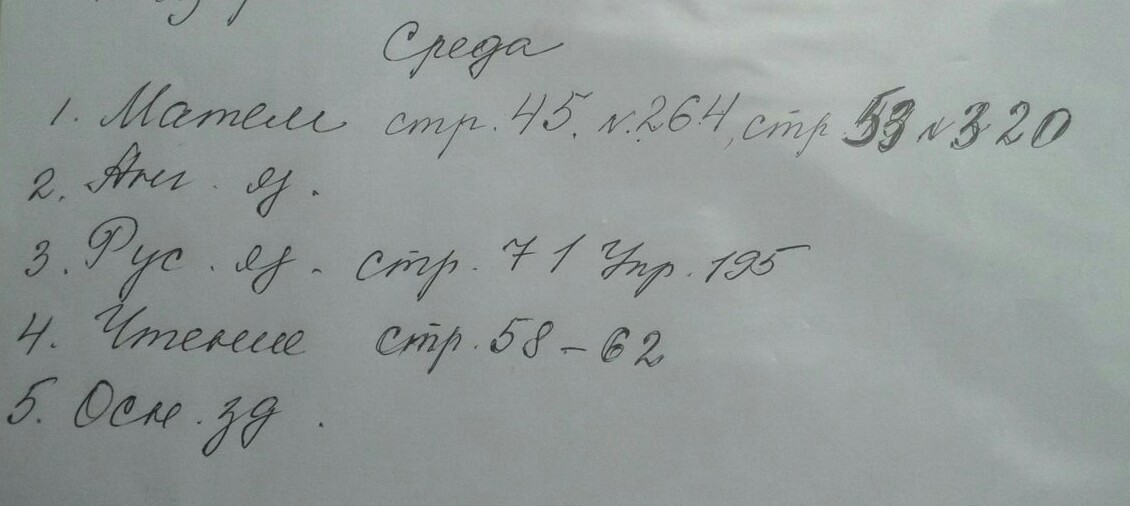 Среда
1. Матем стр. 45. №264, стр 53 №320
2. Анг. яз.
3. Рус. яз. стр. 71 Упр. 195
4. Чтение стр. 58-62
5. Осн. зд.